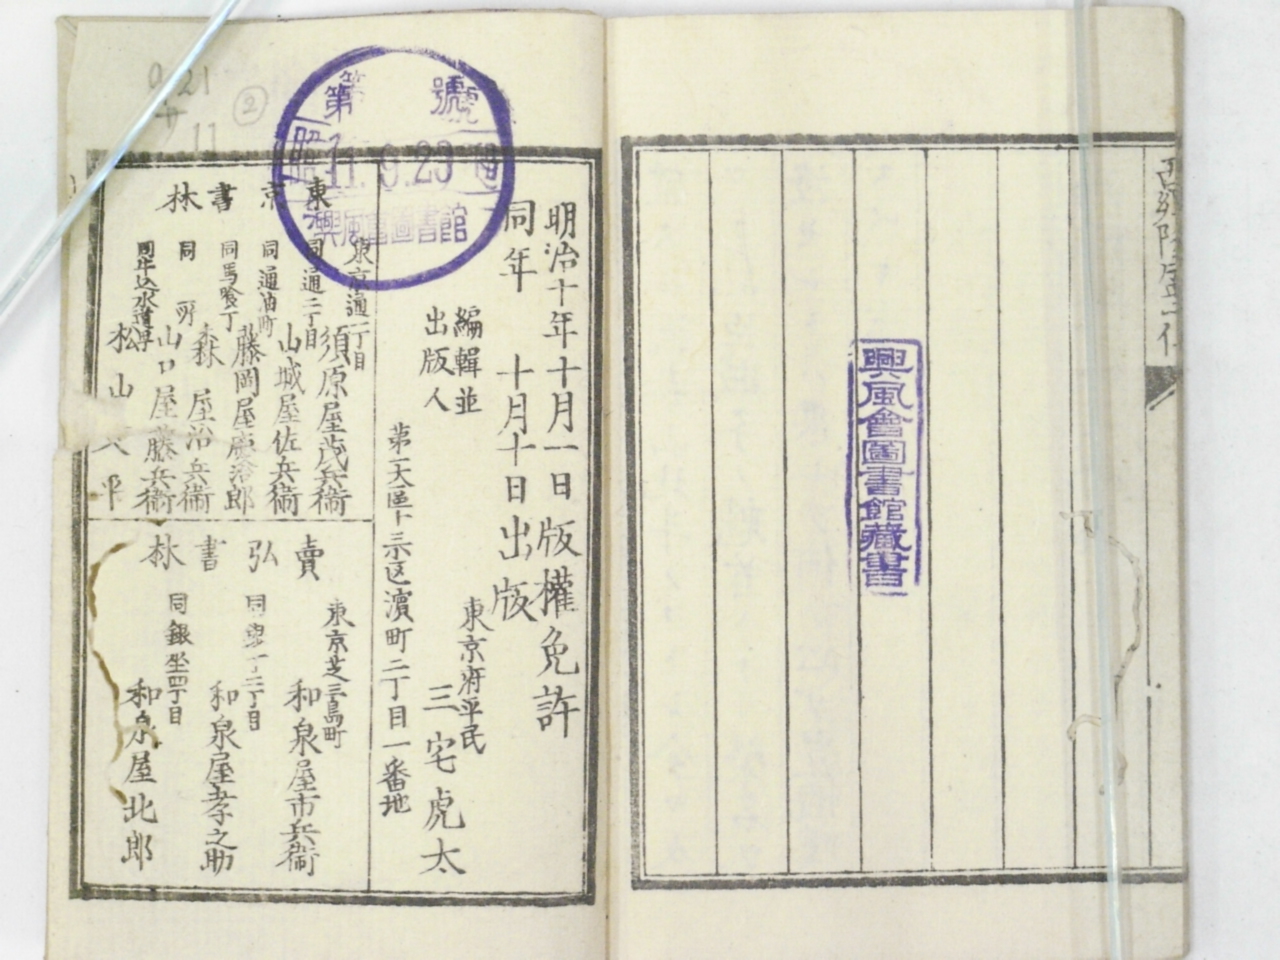 興風會圖書館藏書
明治十年十月一日版權免許
同年十月十日出版
編輯並
出版人
東京府平民
三宅虎太
第一大區十三区濱町二丁目一番地
東京書林
東京通一丁目
須原屋茂兵衞
同通二丁目
山城屋佐兵衞
同通油町
藤岡屋慶治郎
同馬喰丁
森屋治兵衞
同所
山口屋藤兵衞
同牛込水道丁
松山
平
賣弘書林
東京芝三島町
和泉屋市兵衞
同
二丁目
和泉屋孝之助
同銀坐四丁目
和泉屋北郎
第號
昭11.9.23
興風會圖書館
②